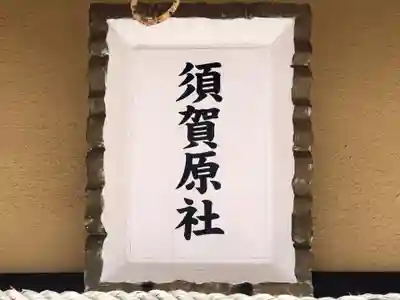 須賀原社